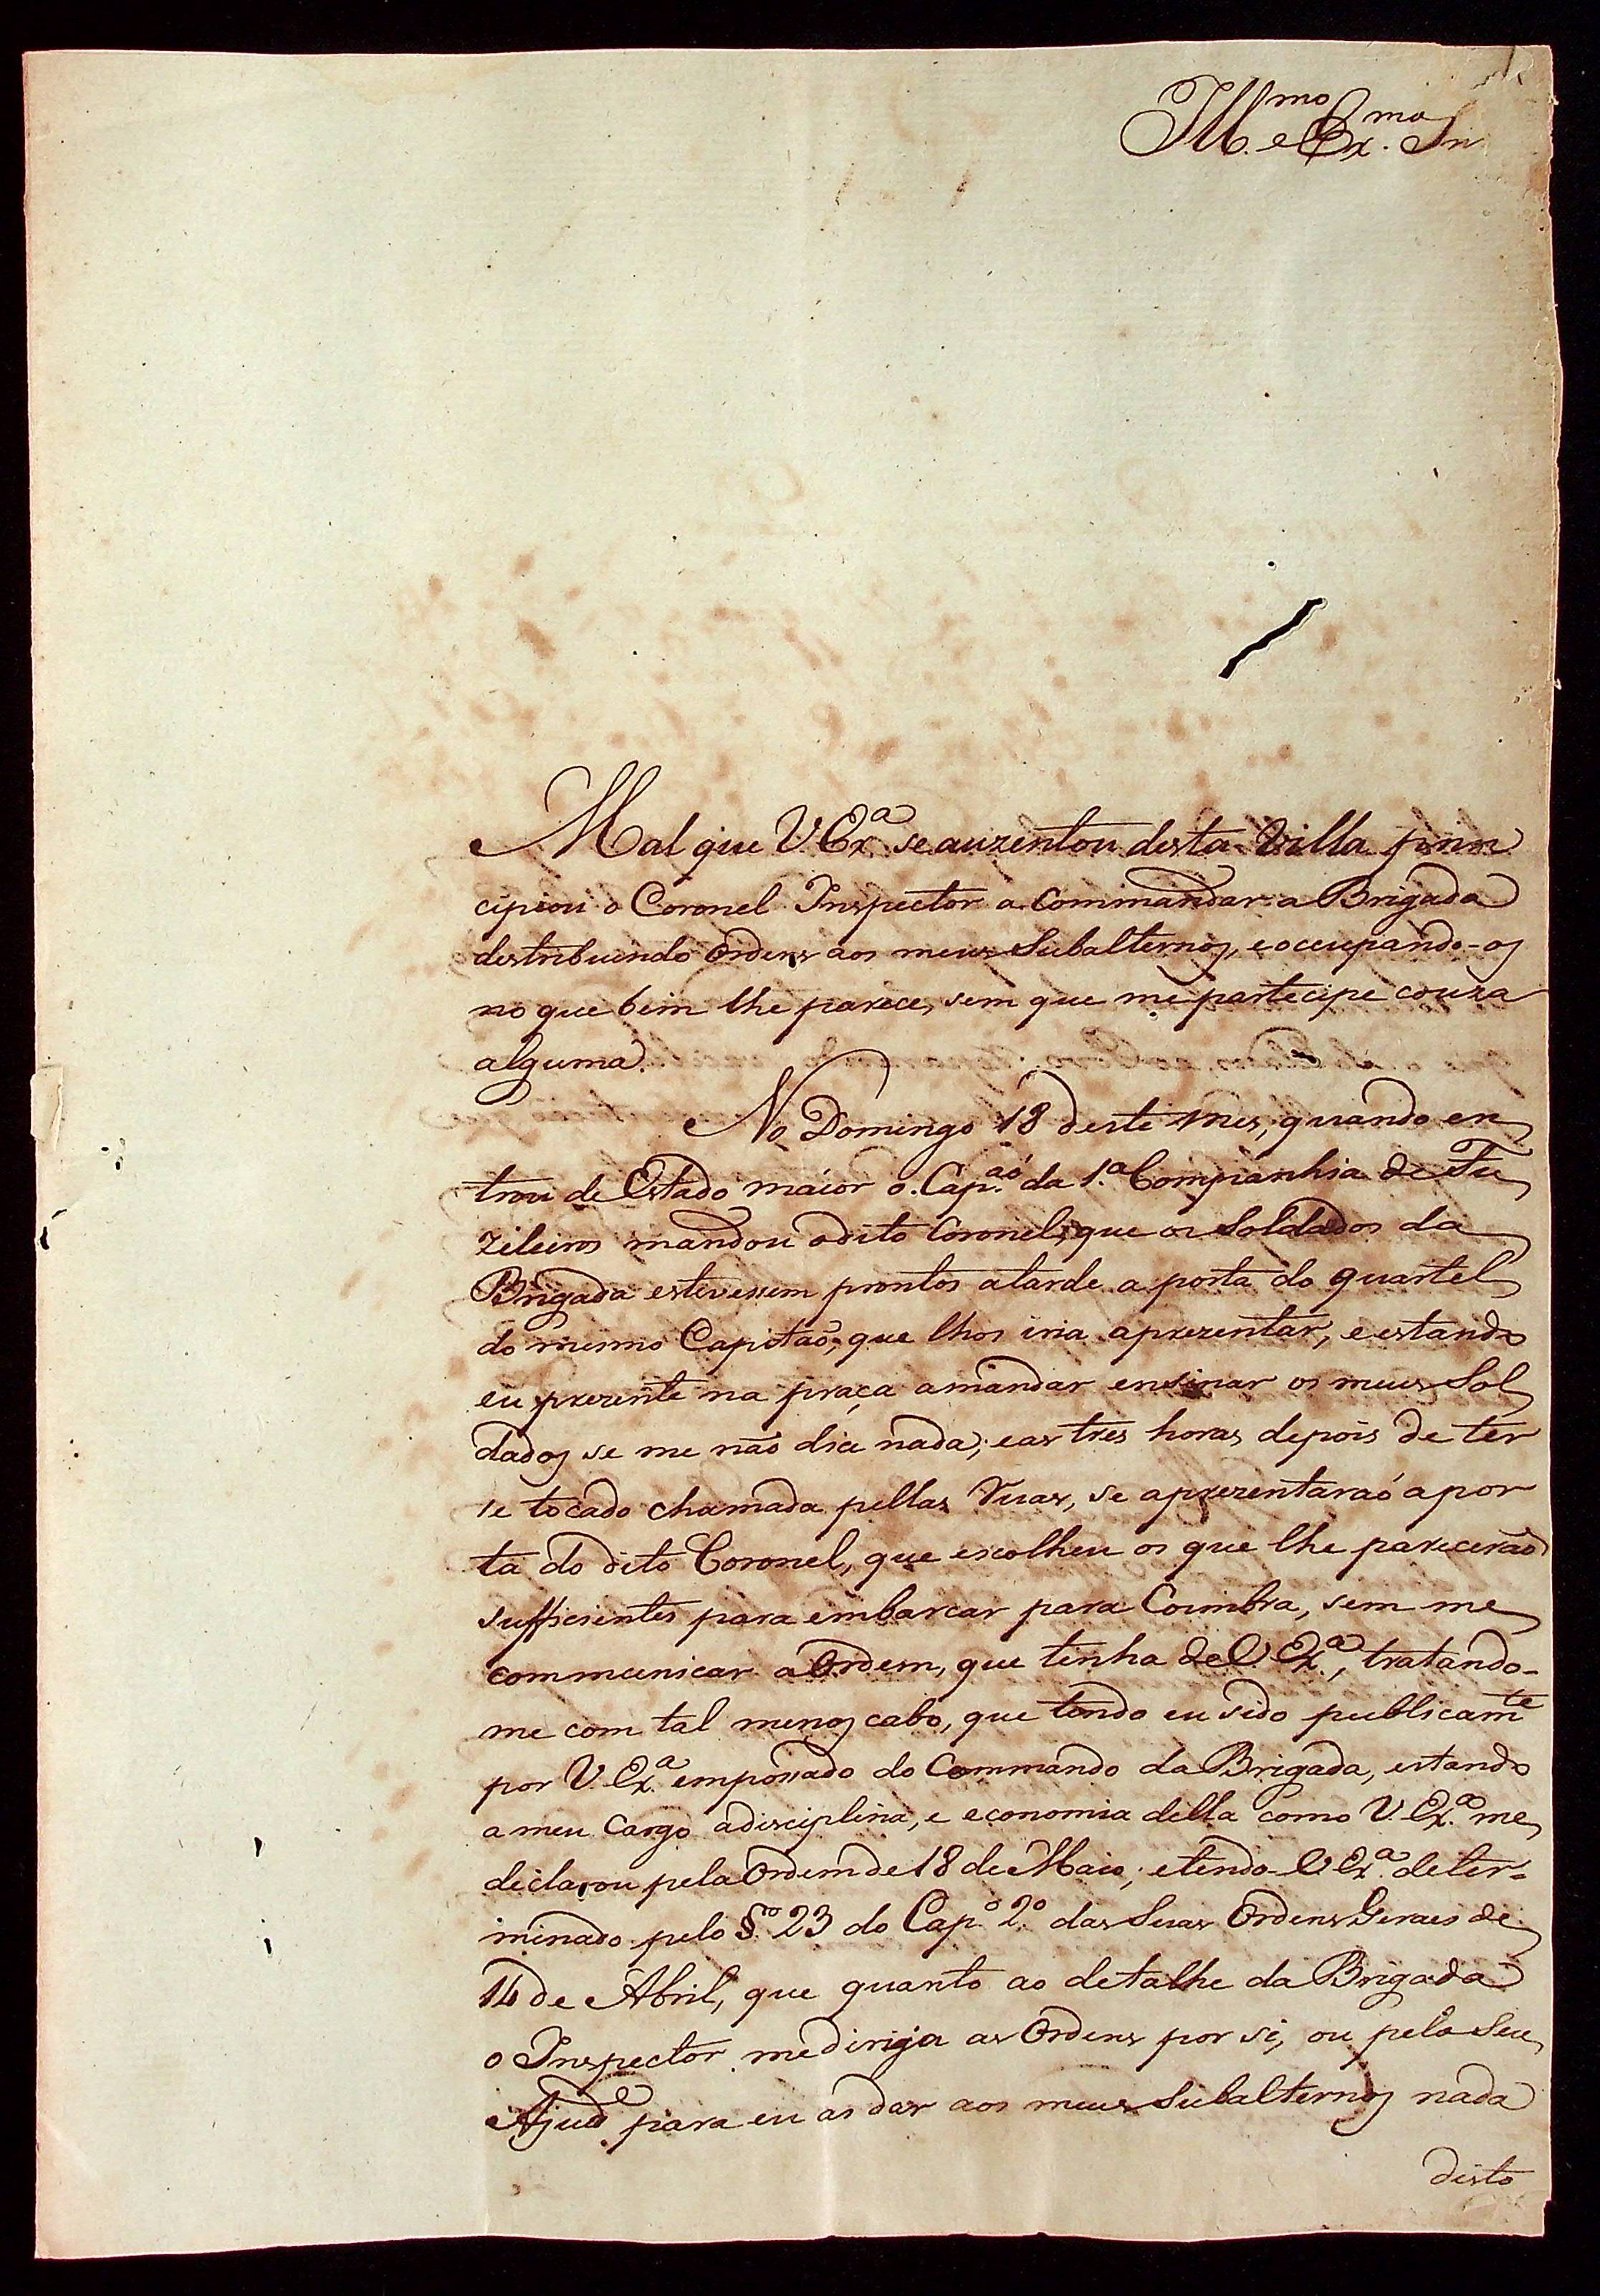 Ill.mo e Ex.mo Snr
Mal que V. Ex.a se auzentou desta Villa prin
cipiou o Coronel Inspector a Commandar a Brigada
destribuindo Ordens aos meus Subalternos, e occupando-os
no que bem lhe parece, sem que me partecipe couza
alguma.
No Domingo 18 deste mes, quando en
trou de Estado maior o Cap.aó da 1.a Companhia de Fu
zileiros mandou odito Coronel, que os Soldados da
Brigada estivessem prontos atarde a porta do quartel
do mesmo Capitaõ, que lhos iria aprezentar, e estando
eu prezente na praça amandar ensinar os meus Sol
dados se me não dice nada; eas tres horas depois de ter
se tocado chamada pellas Ruas, se aprezentaraó a por
ta do dito Coronel, que escolheu os que lhe parecerão
sufficientes para embarcar para Coimbra, sem me
communicar a Ordem, que tenha de V. Ex.a, tratando-
me com tal menos cabo, que tendo eu sido publicam.te
por V. Ex.a empossado do Commando da Brigada, estando
a meu Cargo adisciplina, e economia della como V. Ex.a me
declarou pela Ordem de 18 de Maio; etendo V Ex.a deter-
minado pelo §.ro 23 do Cap.o 2.o das Suas Ordens Geraes de
14 de Abril, que quanto ao detalhe da Brigada
o Inspector me dirija as Ordens por si, ou pelo Seu
Ajud.e para eu as dar aos meus Subalternos nada
disto